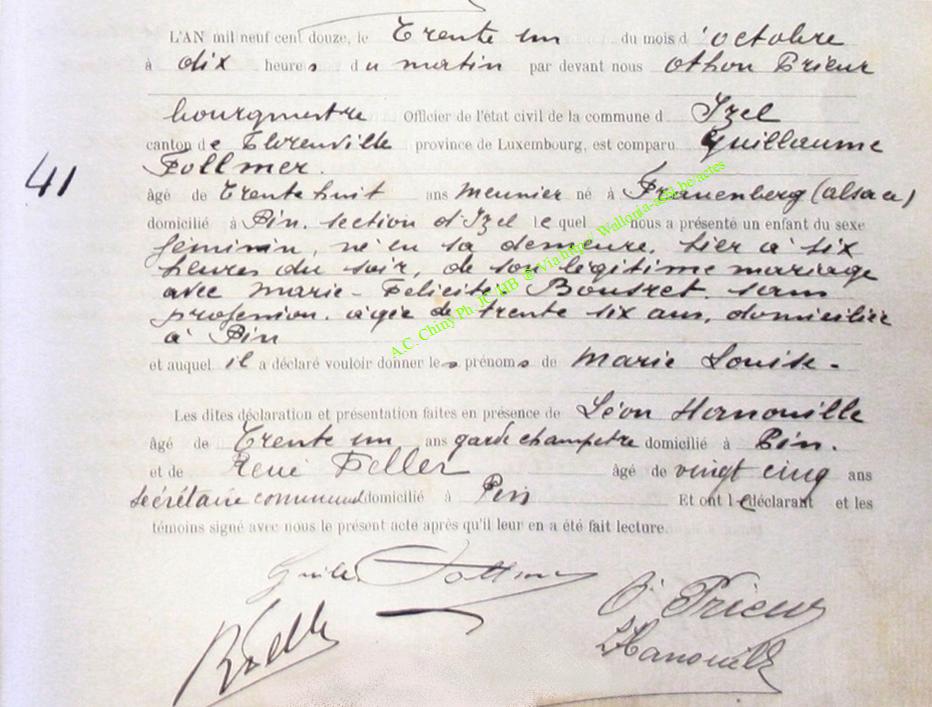 L'AN mil neuf cent douze, le Trente un du mois d'octobre
à dix heures du matin par devant nous Othon Prieur
bourgmestre Officier de l'état civil de la commune d Izel
canton de Florenville province de Luxembourg, est comparu Guillaume
Follmer.
41
âgé de Trente huit ans meunier né à Frauenberg (alsace)
domicilié à Pin, section d'Izel lequel nous a présenté un enfant du sexe
féminin, né en sa demeure, hier à six
heures du soir, de son légitime mariage
avec Marie-Félicité sans
profession, âgée de trente six ans, domiciliée
à Pin
et auquel il a déclaré vouloir donner les prénoms de Marie Louise -
Les dites déclaration et présentation faites en présence de Léon Hanouille
âgé de Trente un ans garde champetre domicilié à Pin.
et de René Feller âgé de vingt cinq ans
secrétaire communal domicilié à Pin Et ont le déclarant et les
témoins signé avec nous le présent acte après qu'il leur en a été fait lecture.
O. Prieur
LHanouille
A.C. Chiny Ph JC MB @ Via http// Wallonia-asbl.be actes